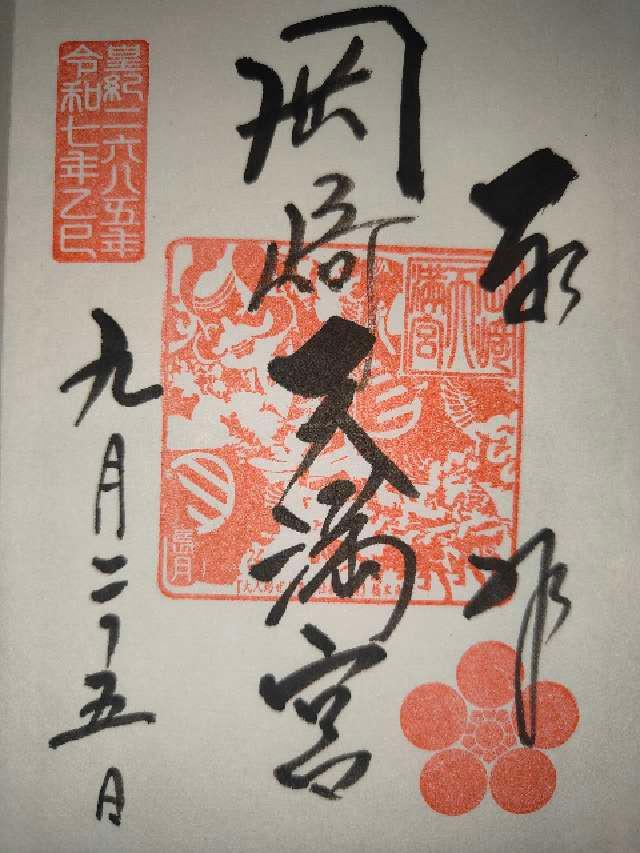 奉拝
岡崎天満宮
皇紀二六八五年
令和七年乙巳
九月二十五日
天満宮
長月